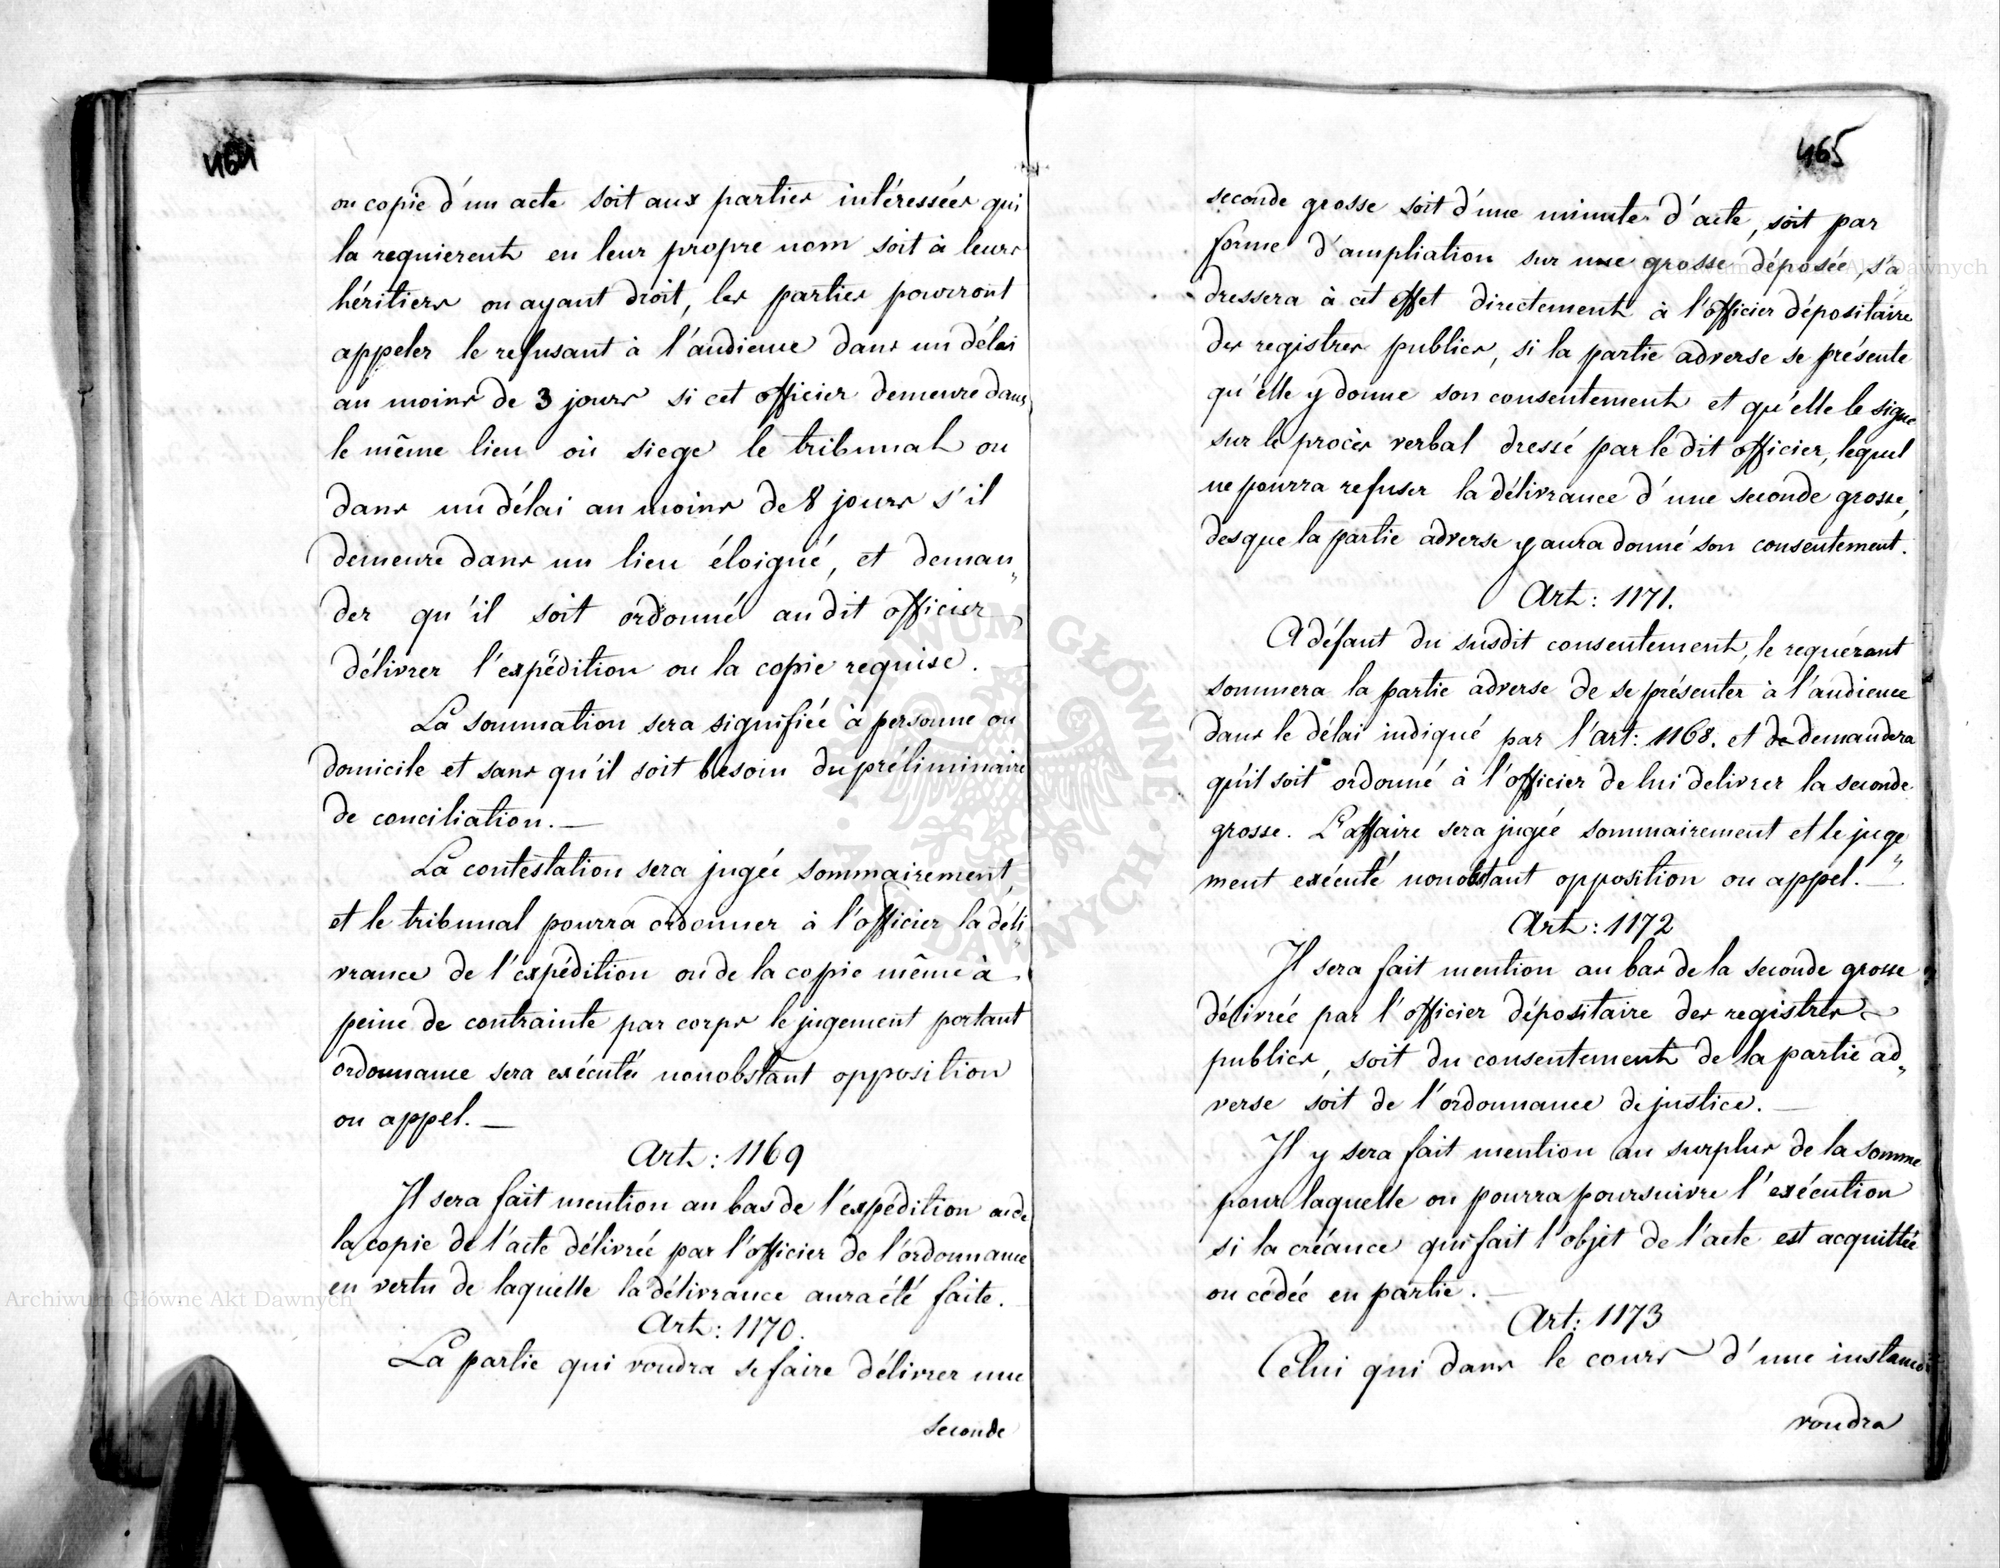 464
ou copie d'un acte soit aux parties intéressées qui
la requierent en leur propre nom soit à leurs
héritiers ou ayant droit, les parties pourront
appeler le refusant à l'audience dans un délai
au moins de 3 jours si cet officier demeure dans
le même lieu où siege le tribunal ou
dans un délai au moins de 8 jours s'il
demeure dans un lieu éloigné, et deman„
der qu'il soit ordonné au dit officier
délivrer l'expédition ou la copie requise.
La sommation sera signifiée à personne ou
domicile et sans qu'il soit besoin du préliminaire
de conciliation. —
La contestation sera jugée sommairement,
et le tribunal pourra ordonner à l'officier la déli„
vrance de l'expédition ou de la copie même à
peine de contrainte par corps le jugement portant
ordonnance sera exécutée nonobstant opposition
ou appel. —
Art: 1169
Il sera fait mention au bas de l'expédition ou de
la copie de l'acte délivrée par l'officier de l'ordonnance
en vertu de laquelle la délivrance aura été faite.
Art: 1170.
La partie qui voudra se faire délivrer une
seconde
465
seconde grosse soit d'une minute d'acte, soit par
forme d'ampliation sur une grosse déposée, s'a„
dressera à cet effet directement à l'officier dépositaire
des registres publics, si la partie adverse se présente
qu'elle y donne son consentement et qu'elle le signe
sur le procès verbal dressé par le dit officier, lequel
ne pourra refuser la délivrance d'une seconde grosse,
des que la partie adverse y aura donné son consentement.
Art: 1171.
A défaut du susdit consentement, le requérant
sommera la partie adverse de se présenter à l'audience
dans le délai indiqué par l'art: 1168. et de demandera
qu'il soit ordonné à l'officier de lui delivrer la seconde
grosse. L'affaire sera jugée sommairement et le juge„
ment exécuté nonobstant opposition ou appel. —
Art: 1172
Il sera fait mention au bas de la seconde grosse
délivrée par l'officier dépositaire des registres
publics, soit du consentement de la partie ad„
verse soit de l'ordonnance de justice. —
Il y sera fait mention au surplus de la somme
pour laquelle on pourra poursuivre l'exécution
si la créance qui fait l'objet de l'acte est acquittée
ou cédée en partie. —
Art: 1173
Celui qui dans le cours d'une instance
voudra
Archiwum Główne Akt Dawnych